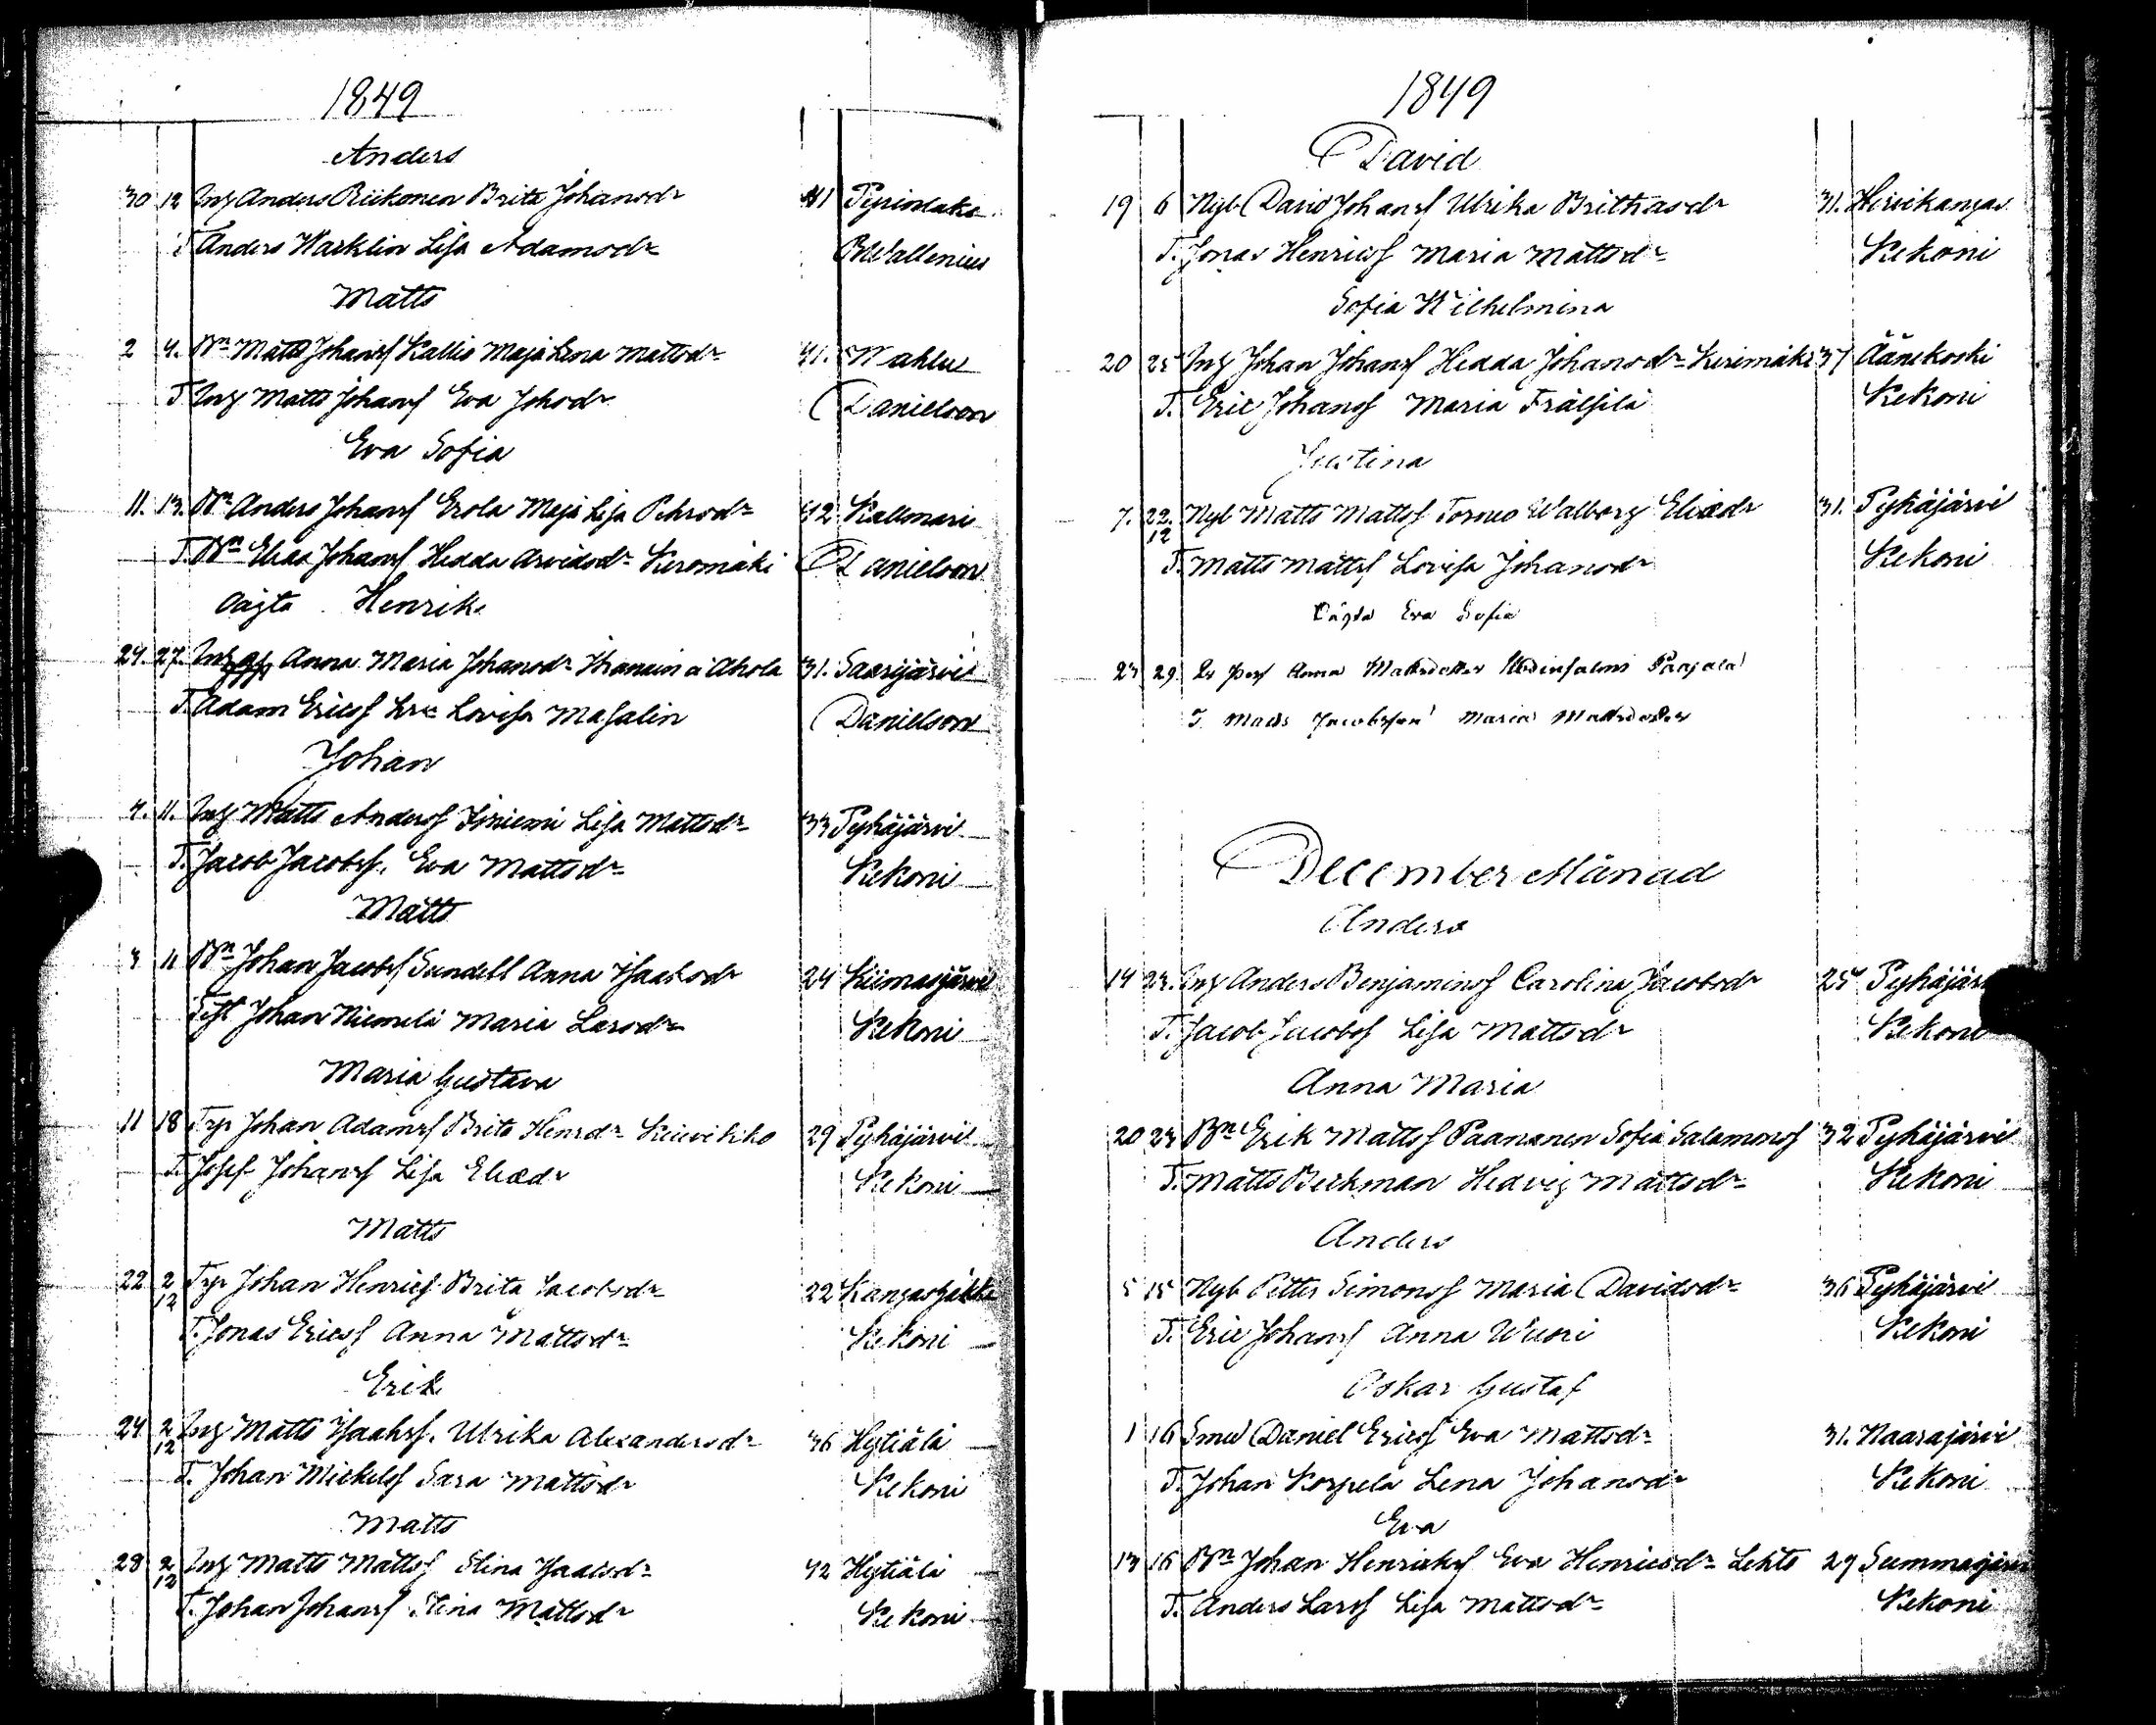 1849
Anders
30 12 Inh Anders Riikonen Brita Johansdr 41 Pyrinlaks
T Anders Warklin Lisa Adamsdr Wallenius
Matts
2 4. Bn Matts Johansf Kallio Maja Lena Mattsdr 41. Mahlu
T Inh Matts Johansf Eva Johsdr Danielson
Eva Sofia
11. 13. Bn Anders Johansf Erola Maja Lisa Pehrsdr 42 Kallmari
T. Bn Elias Johansf Hedda Arvidsdr Danielson
oägta Henrik
24. 27. Inh Anna Maria Johansdr a Ahola 31. Saarijärvi
T. Adam Ericsf Lovisa Masalin Danielson
Johan
4. 11. Inh Matts Andersf Lisa Mattsdr 33 Pyhäjärvi
T. Jacob Jacobsf. Eva Mattsdr Kekoni
Matts
3 11 Bn Johan Jacobsf Sundell Anna Isaksdr 24 Kiimasjärvi
Johan Niemelä Maria Larsdr Kekoni
Maria Gustava
11 18 Trp Johan Adamsf Brita Henrdr 29 Pyhäjärvi
T. Josef Johansf Lisa Eliædr Kekoni
Matts
22 2/12 Trp Johan Henricsf Brita Jacobsdr 22 Kangashäkki
T. Jonas Ericsf Anna Mattsdr Kekoni
Erik
24 2/12 Inh Matts Isaaksf. Ulrika Alexandersdr 36 Hytiälä
T. Johan Mickelsf Sara Mattsdr Kekoni
Matts
28 2/12 Inh Matts Mattsf Stina Isaacsdr 42 Hytiälä
T. Johan Johansf Stina Mattsdr Kekoni
1849
David
19 6 Nyb David Johansf Ulrika Brithasdr 31. Hirvikangas
T. Jonas Henricsf Maria Mattsdr Kekoni
Sofia Wilhelmina
20 25 Inh Johan Johansf Hedda Johansdr Kerimäki 37 Äänekoski
T. Eric Johansf Maria Frälsilä Kekoni
Justina
7. 22./12 Nyb Matts Mattsf Walborg Eliædr 31. Pyhäjärvi
T. Matts Mattsf Lovisa Johansdr Kekoni
Oägta Eva Sofia
23 29. Anna Mattsdotter Paajala
T. Matts Jacobsson Maria Mattsdotter
December Månad
Anders
14 23. Inh Anders Benjaminsf Carolina Jacobsdr 25 Pyhäjär
T. Jacob Jacobsf Lisa Mattsdr Kekoni
Anna Maria
20 23 Bn Erik Mattsf Paananen Sofia Salomonsf 32 Pyhäjärvi
T. Matts Beckman Hedvig Mattsdr Kekoni
Anders
5 15 Nyb Petter Simonsf Maria Davidsdr 36 Pyhäjärvi
T. Eric Johansf Anna Wuori Kekoni
Oskar Gustaf
1 16 Smed Daniel Ericsf Eva Mattsdr 31. Naarajärvi
T. Johan Korpela Lena Johansdr Kekoni
Eva
13 16 Bn Johan Henricksf Eva Henricsdr Lehto 29 Summasjärvi
T. Anders Larsf Lisa Mattsdr Kekoni